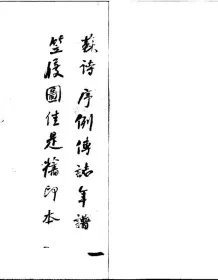 蘇詩序例傳誌年譜
笠屐圖佳是舊印本
一